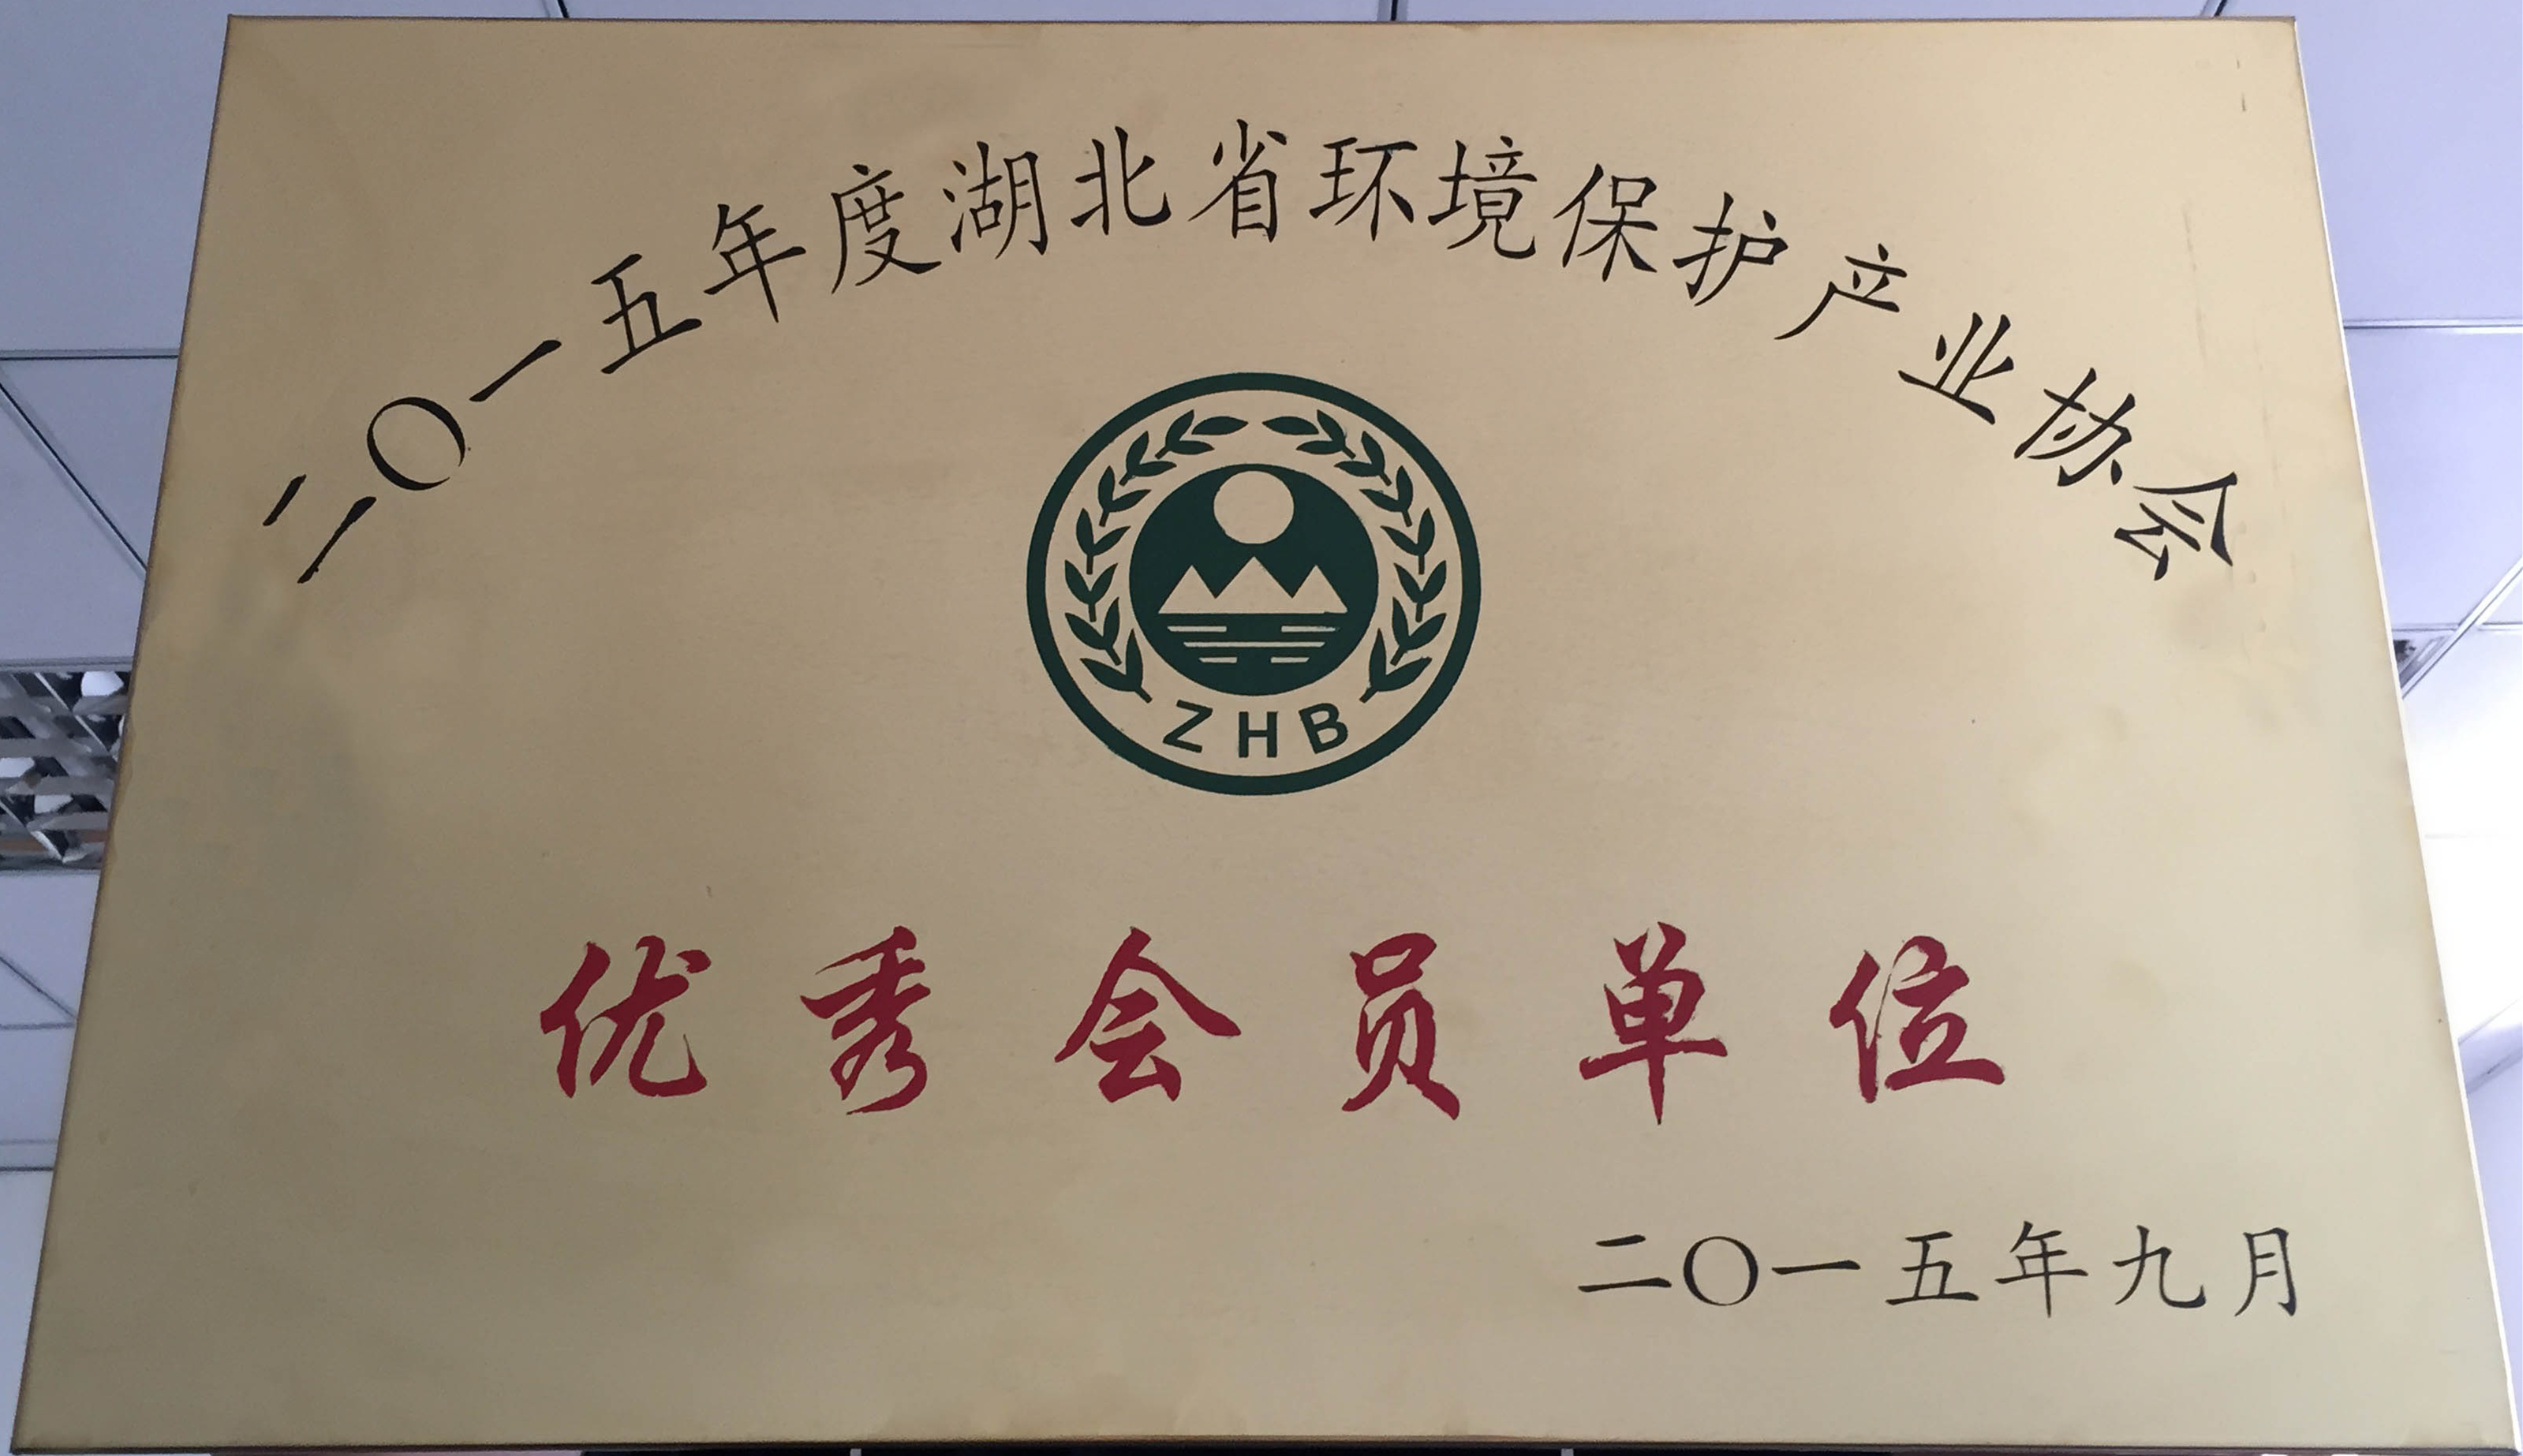 二〇一五年度湖北省环境保护产业协会
ZHB
优秀会员单位
二〇一五年九月